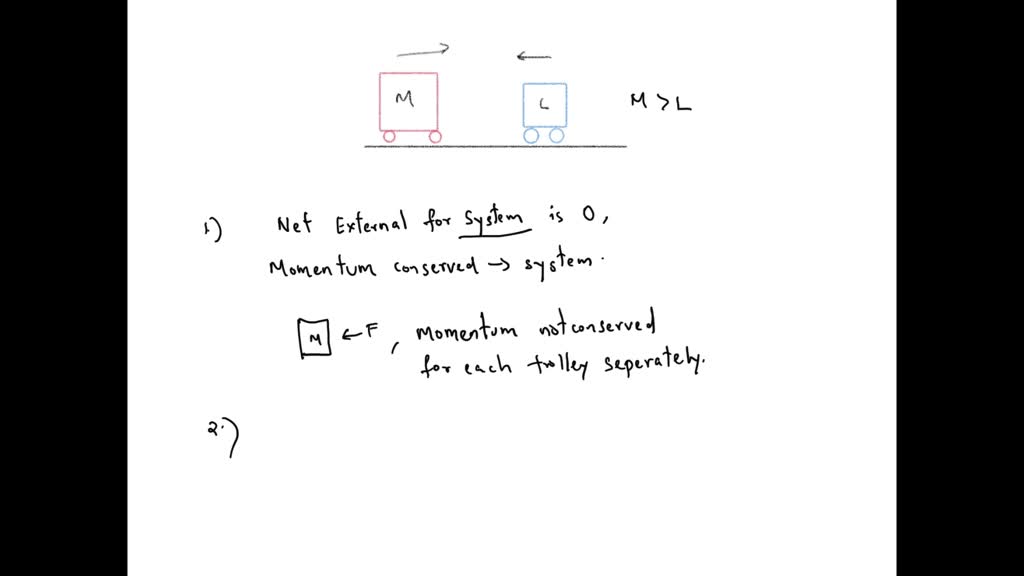 M
L
M > L
1) Net External for system is 0,
Momentum conserved → system.
M ← F, Momentum not conserved
for each trolley seperately.
2.)